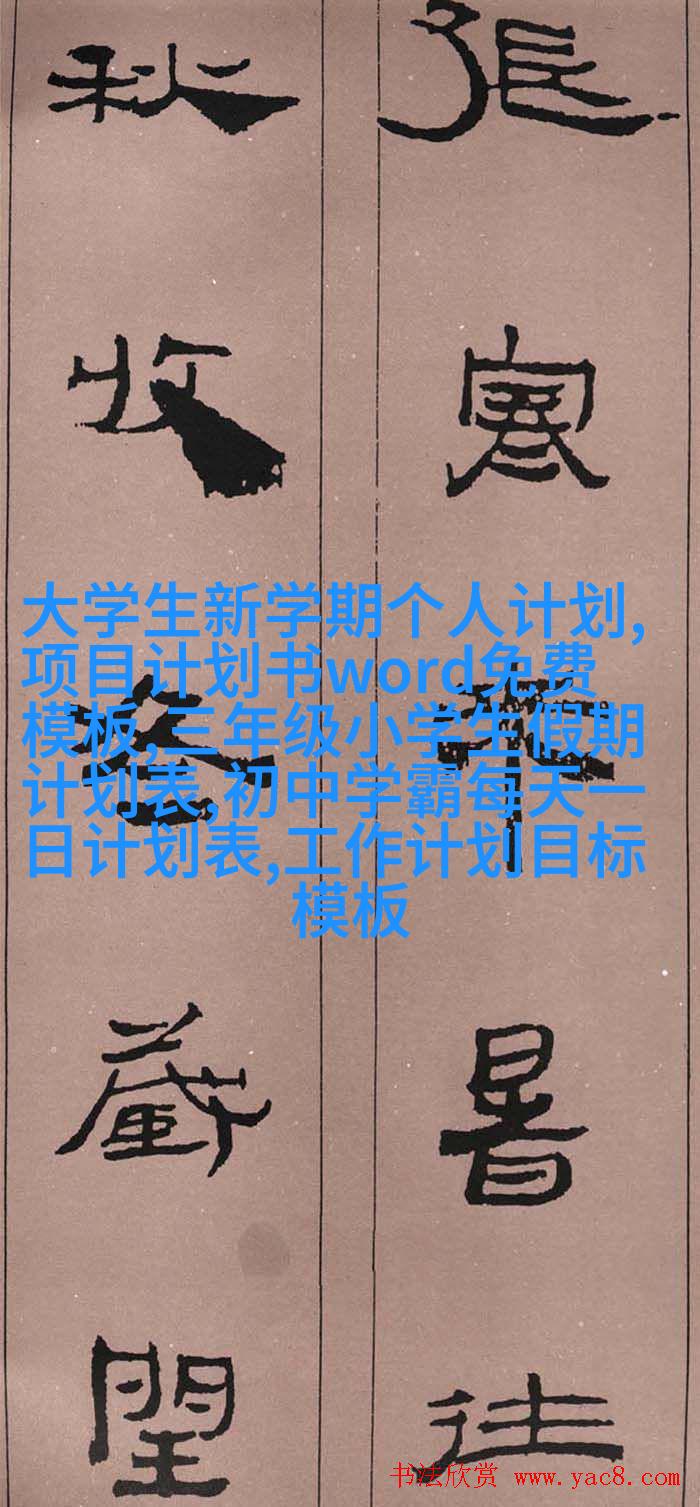 張寒來暑往
秋收冬藏閏
大学生新学期个人计划,
项目计划书word免费
模板,三年级小学生假期
计划表,初中学霸每天一
日计划表,工作计划目标
模板
书法欣赏 www.yac8.com